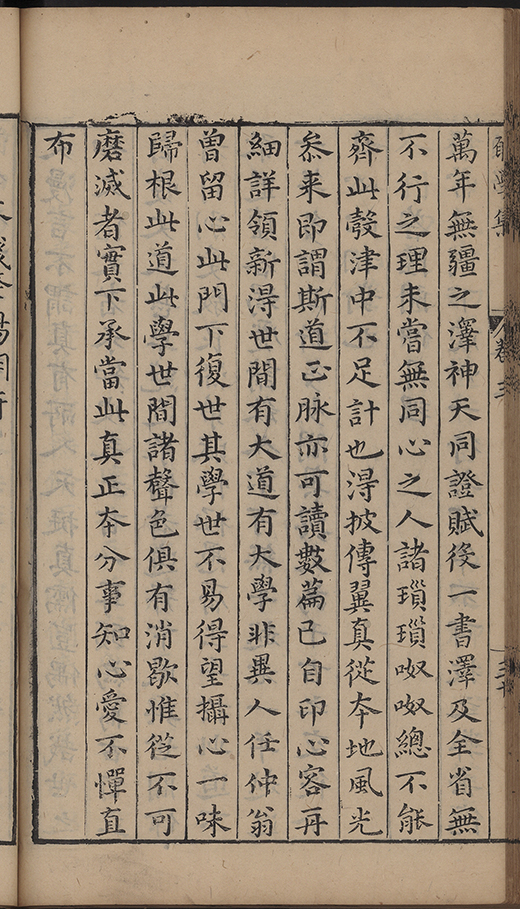 萬年無疆之澤神天同證賦役一書澤及全省無
不行之理未嘗無同心之人諸瑣瑣呶呶總不能
齊此彀津中不足計也淂披傳翼真從夲地風光
叅来即謂斯道正脉亦可讀數篇已自印心容再
細詳領新淂世間有大道有大學非異人任仲翁
曽留心此門下復世其學世不易得望攝心一味
歸根此道此學世間諸聲色俱有消歇惟從不可
磨滅者實下承當此真正夲分事知心愛不憚直
布